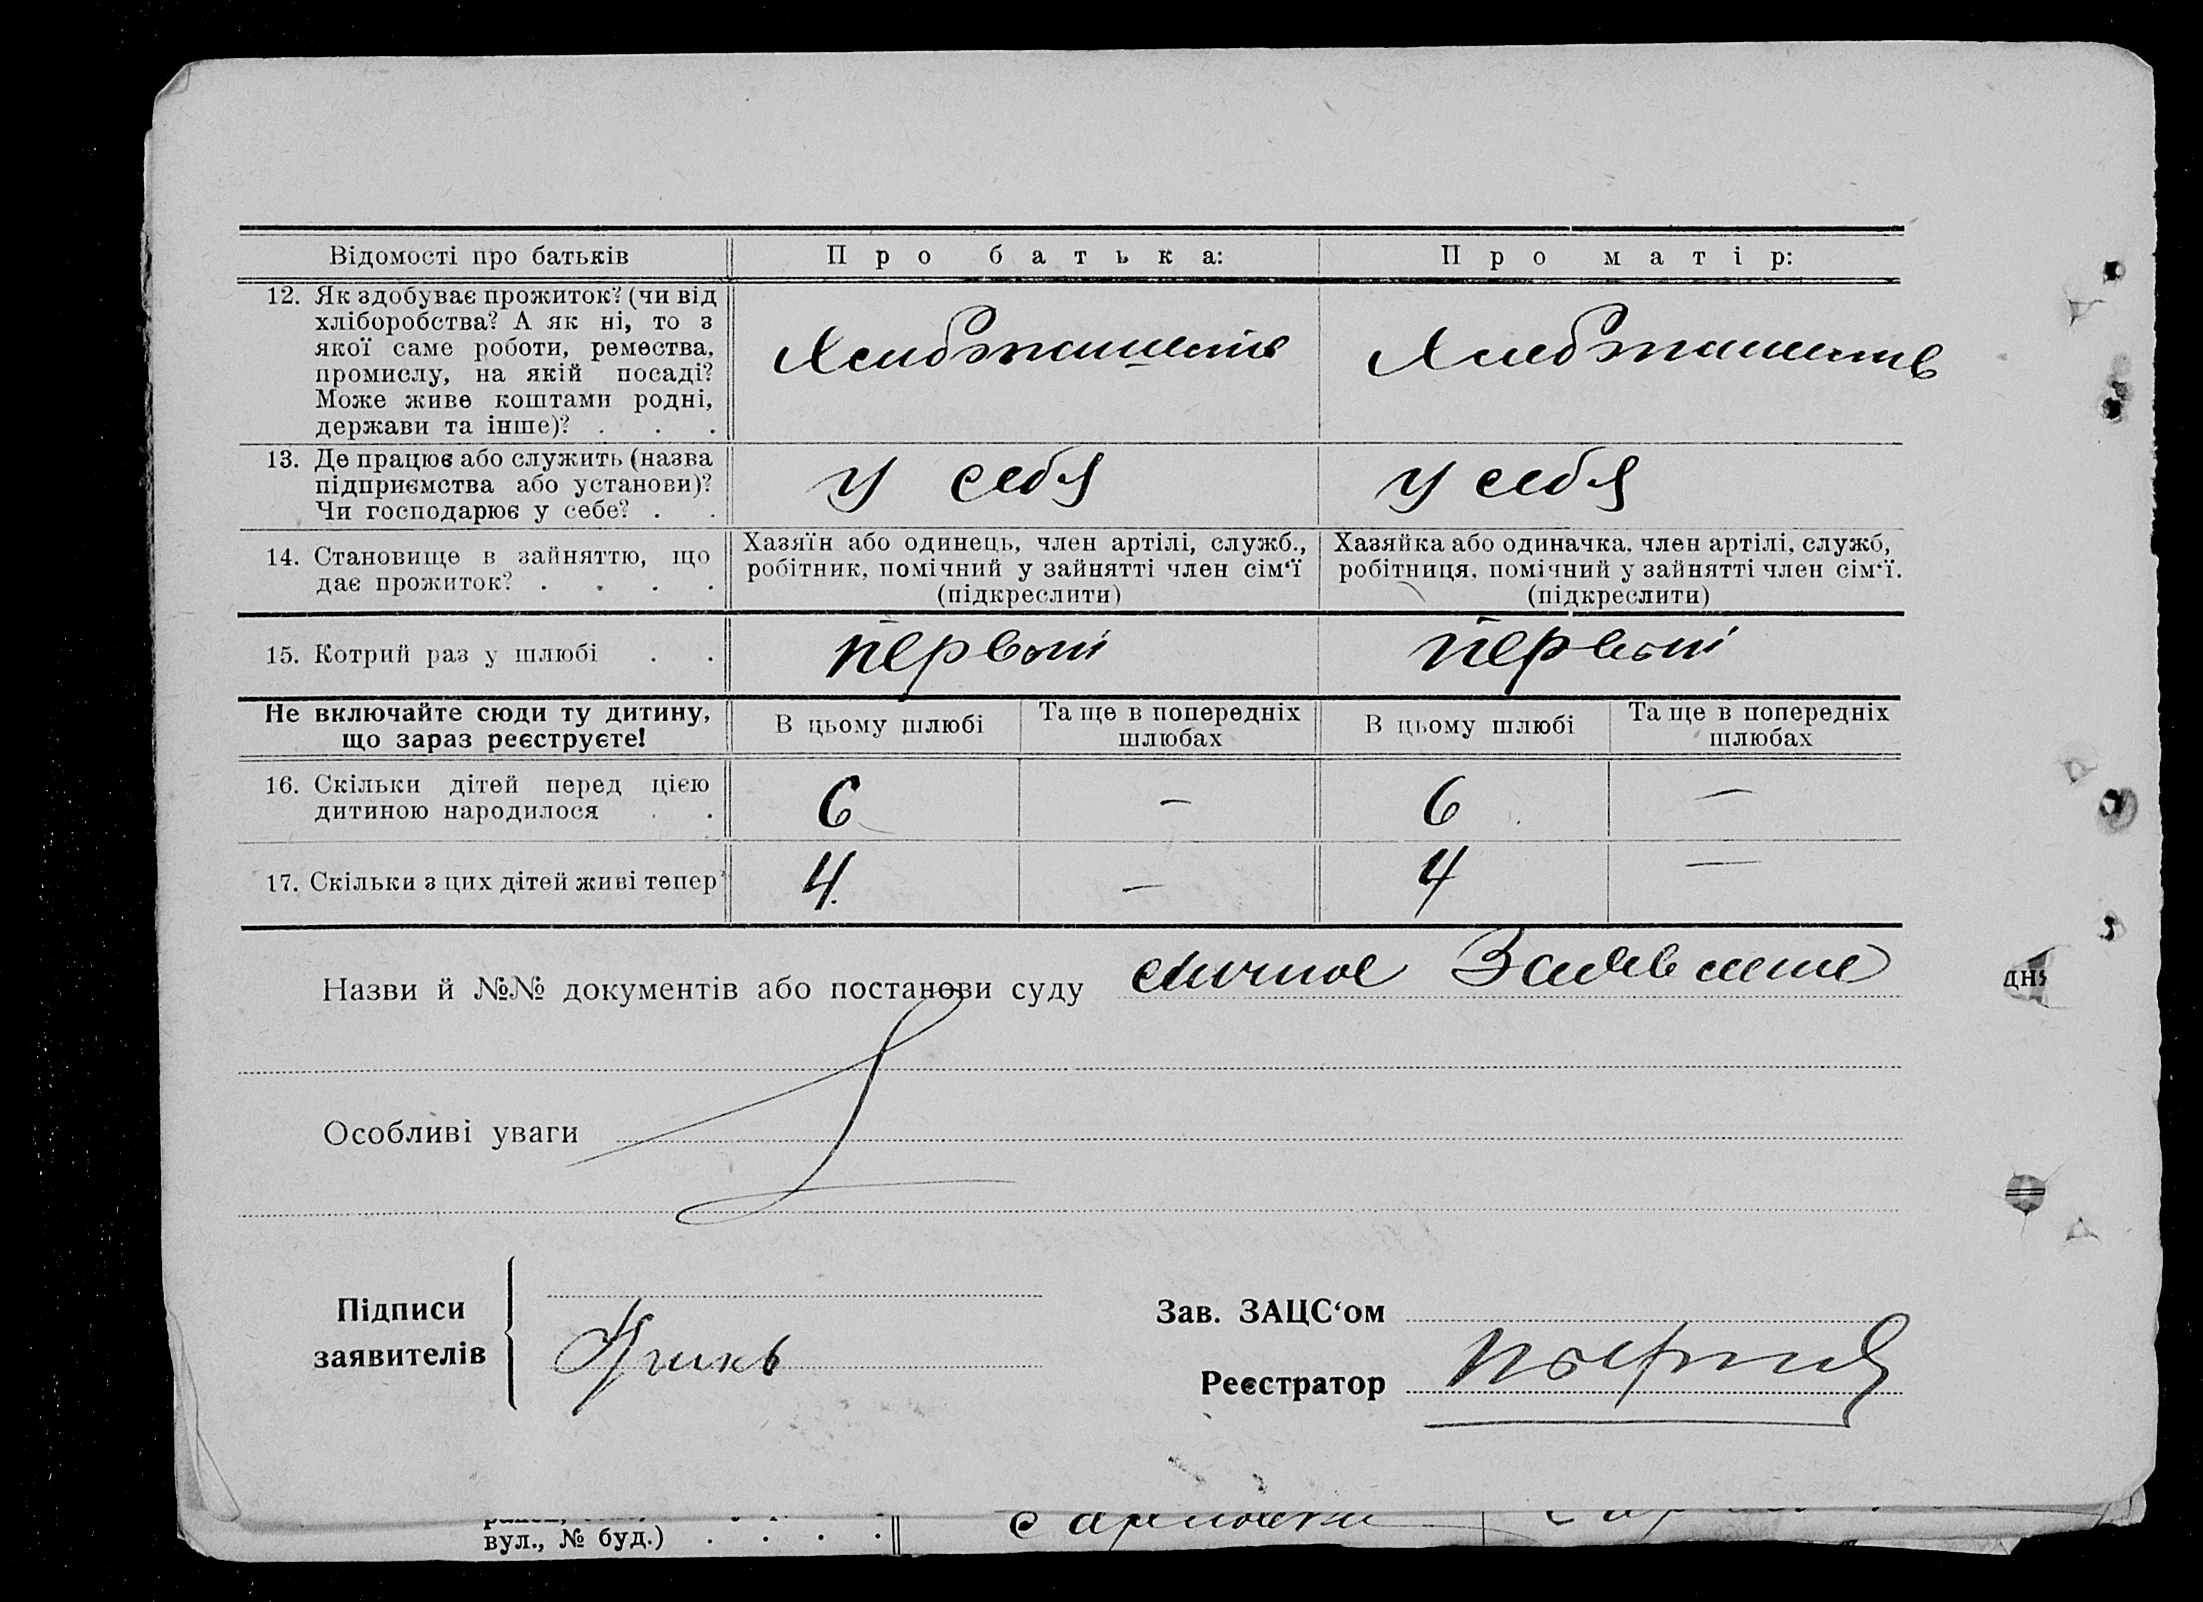 Відомості про батьків
Про батька:
Про матір:
12. Як здобуває прожиток? (чи від
хліборобства? А як ні, то з
якої саме роботи, ремества,
промислу, на якій посаді?
Може живе коштами родні,
держави та інше)? . . .
13. Де працює або служить (назва
підприємства або установи)?
Чи господарює у себе? . .
у себя
у себя
14. Становище в зайняттю, що
дає прожиток? . . . .
Хазяїн або одинець, член артілі, служб.,
робітник, помічний у зайнятті член сім‘ї
(підкреслити)
Хазяйка або одиначка, член артілі, служб,
робітниця, помічний у зайнятті член сім‘ї.
(підкреслити)
15. Котрий раз у шлюбі . .
первый
первый
Не включайте сюди ту дитину,
що зараз реєструєте!
В цьому шлюбі
Та ще в попередніх
шлюбах
В цьому шлюбі
Та ще в попередніх
шлюбах
16. Скільки дітей перед цією
дитиною народилося . .
6 — 6 —
17. Скільки з цих дітей живі тепер
4. — 4 —
Назви й №№ документів або постанови суду личное Заявление
дня
Особливі уваги
Підписи
заявителів
Зав. ЗАЦС‘ом
Реєстратор
вул., № буд.) . . . .